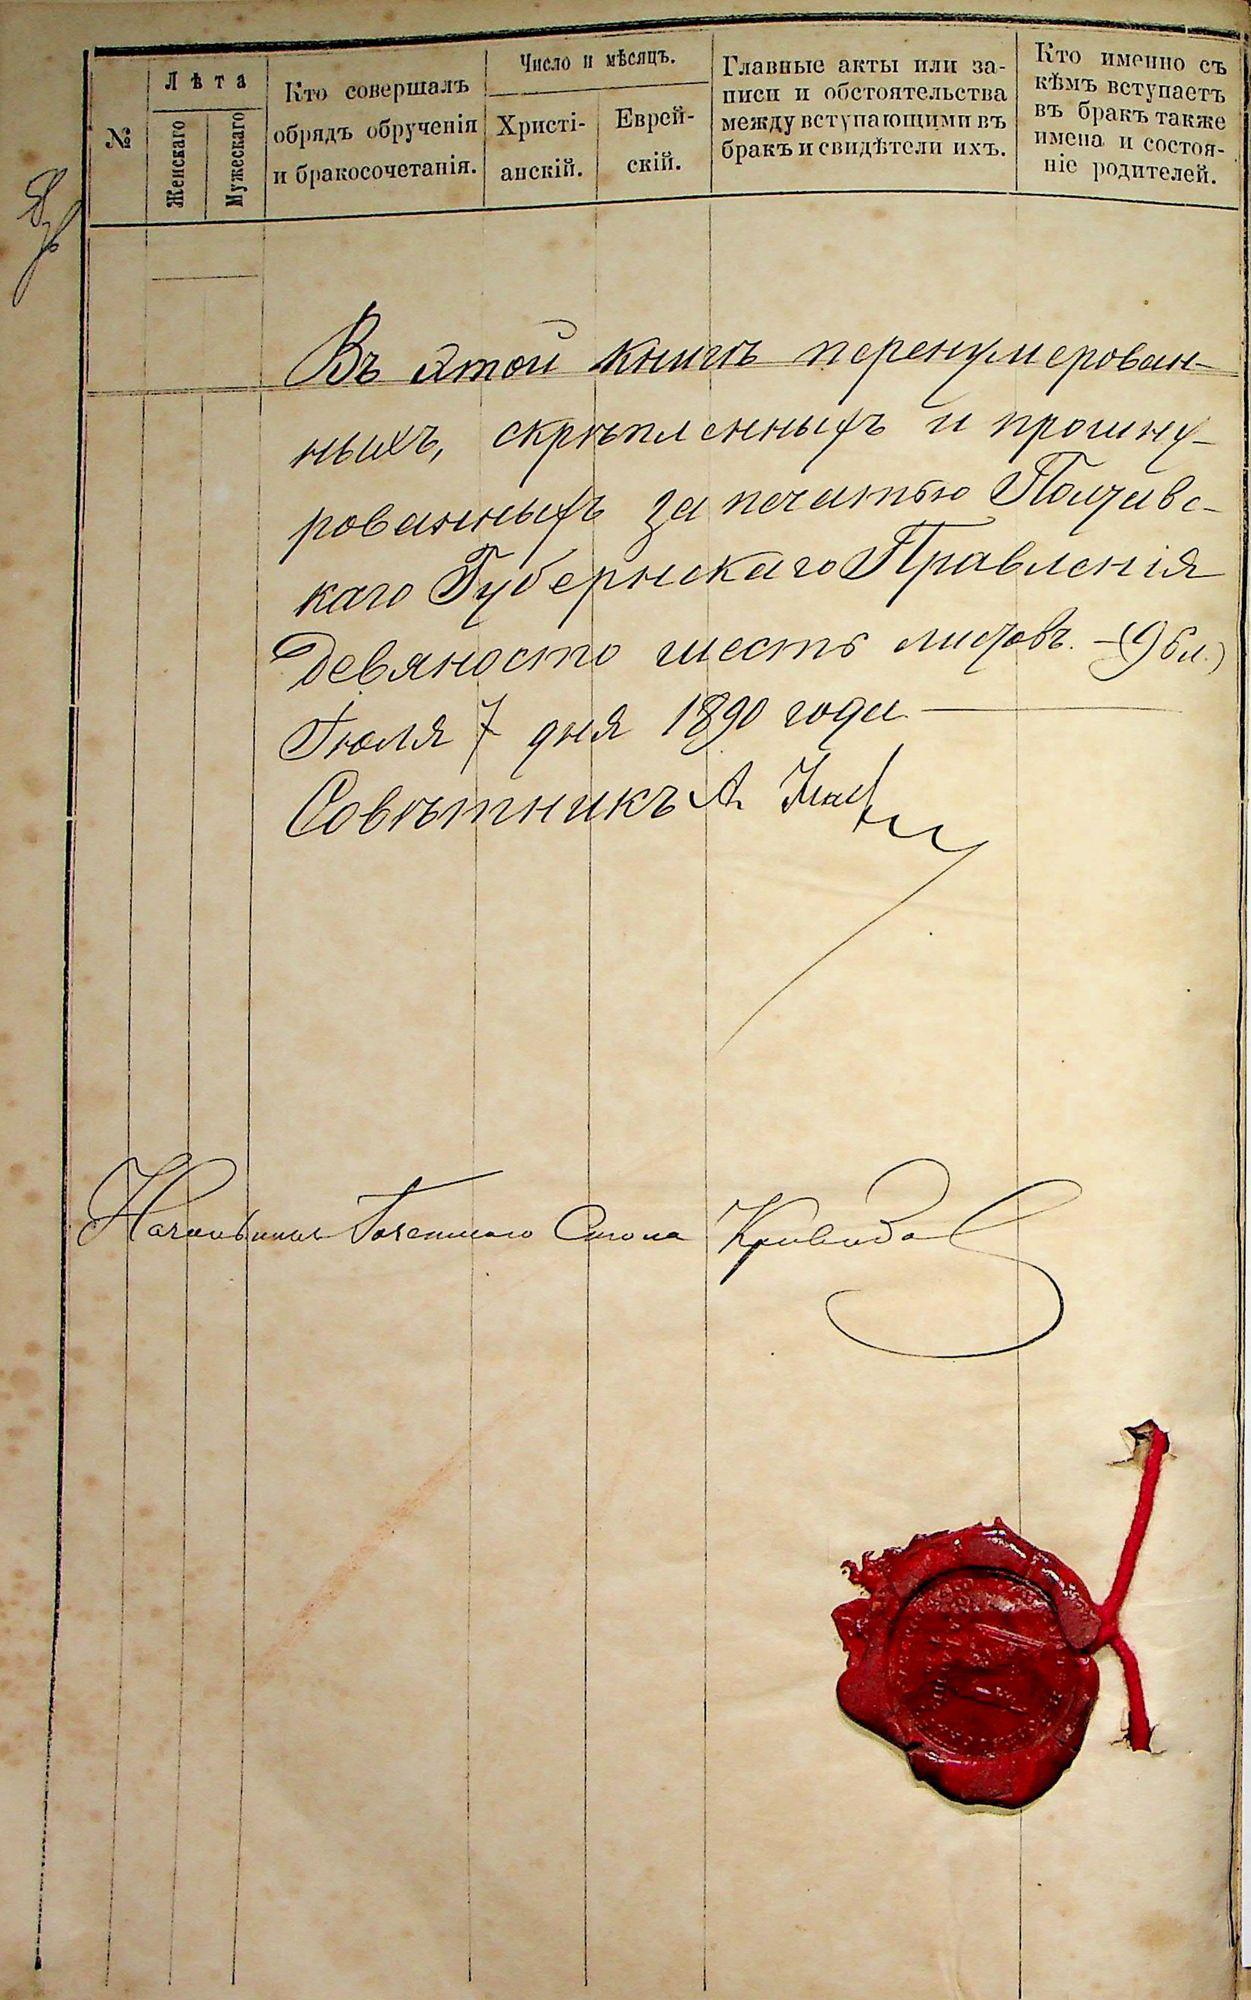 №
Лѣта
Женскаго
Мужескаго
Кто совершалъ
обрядъ обрученія
и бракосочетанія.
Число и мѣсяцъ.
Христі-
анскій.
Еврей-
скій.
Главные акты или за-
писи и обстоятельства
между вступающими въ
бракъ и свидѣтели ихъ.
Кто именно съ
кѣмъ вступаетъ
въ бракъ также
имена и состоя-
ніе родителей.
Въ этой книгѣ перенумерован-
ныхъ, скрѣпленныхъ и прошну-
рованныхъ за печатью Полтавс-
каго Губернскаго Правленія
девяносто шесть листовъ. — (96 л.)
Іюля 7 дня 1890 года
Совѣтникъ А.
Начальникъ Счетнаго Стола